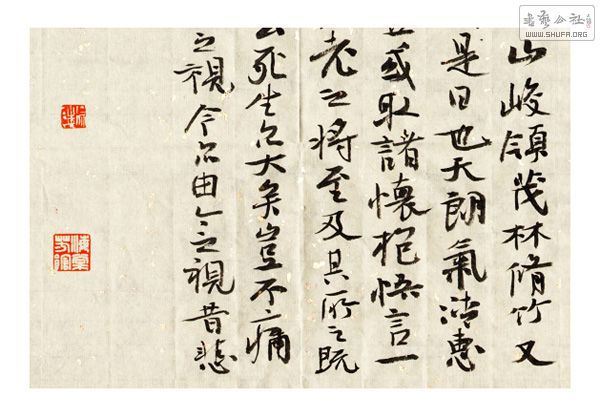 書藝公社
WWW.SHUFA.ORG
山峻領茂林脩竹又
是日也天朗氣清惠
世或取諸懷抱悟言一
老之將至及其所之既
死生亦大矣豈不痛
之視今亦由今之視昔悲